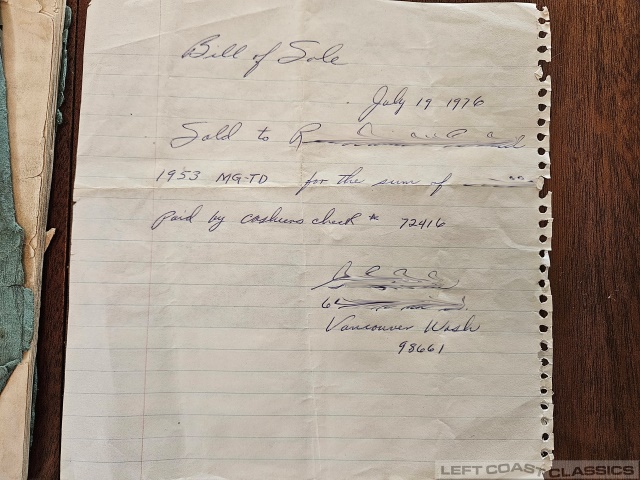 Bill of Sale
July 19 1976
Sold to R
1953 MG-TD for the sum of
paid by cashiers check # 72416
Vancouver Wash
98661
LEFT COAST CLASSICS